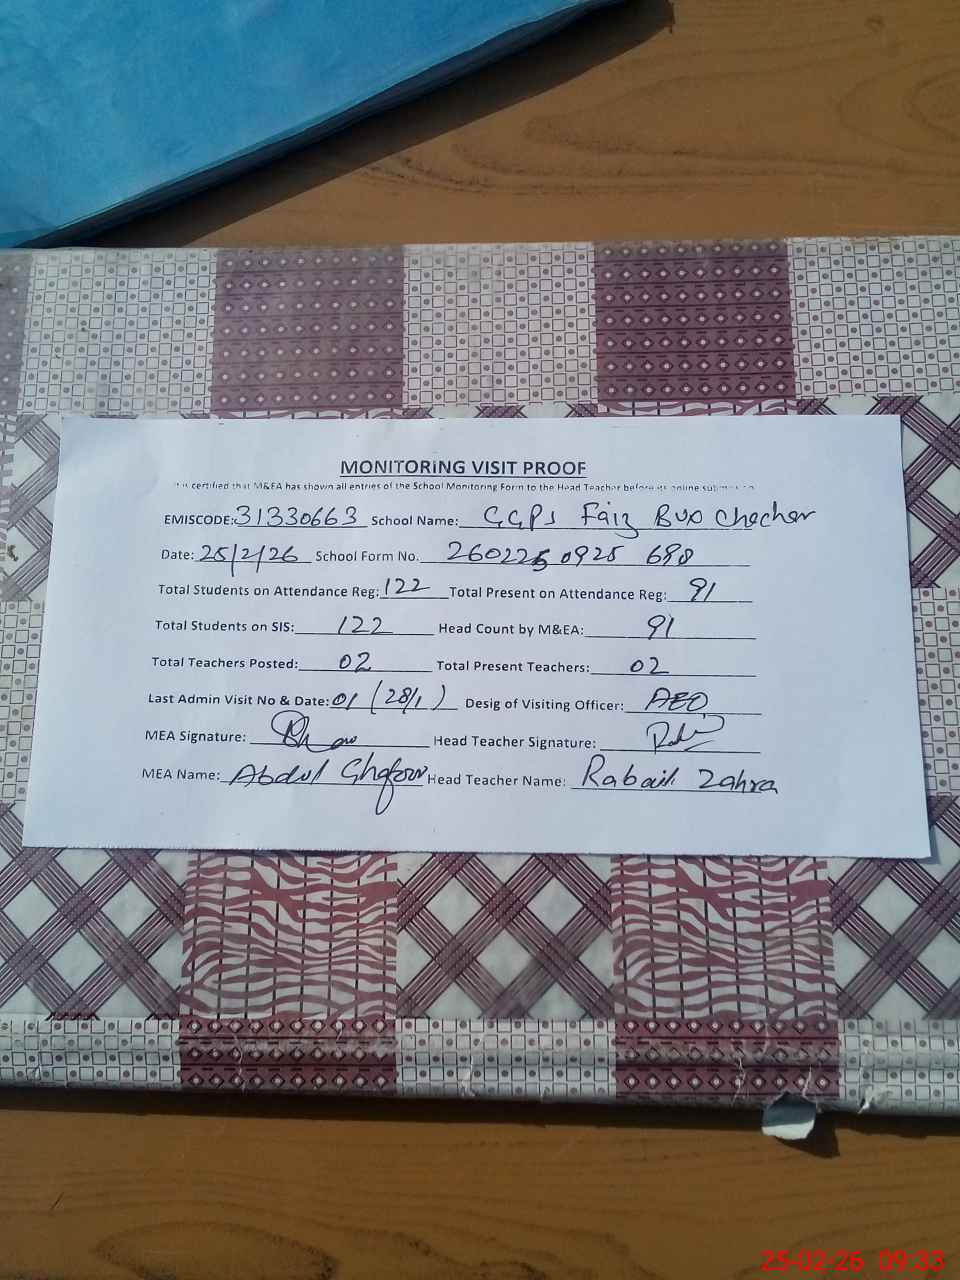 MONITORING VISIT PROOF
It is certified that M&EA has shown all entries of the School Monitoring Form to the Head Teacher before its online submission
EMISCODE: 31330663 School Name: GGPS Faiz Bux Chachar
Date: 25/2/26 School Form No. 260225 0925 698
Total Students on Attendance Reg: 122 Total Present on Attendance Reg: 91
Total Students on SIS: 122 Head Count by M&EA: 91
Total Teachers Posted: 02 Total Present Teachers: 02
Last Admin Visit No & Date: 01 (28/1) Desig of Visiting Officer: AEO
MEA Signature: Head Teacher Signature:
MEA Name: Abdul Ghafoor Head Teacher Name: Rabail Zahra
25-02-26 09:33